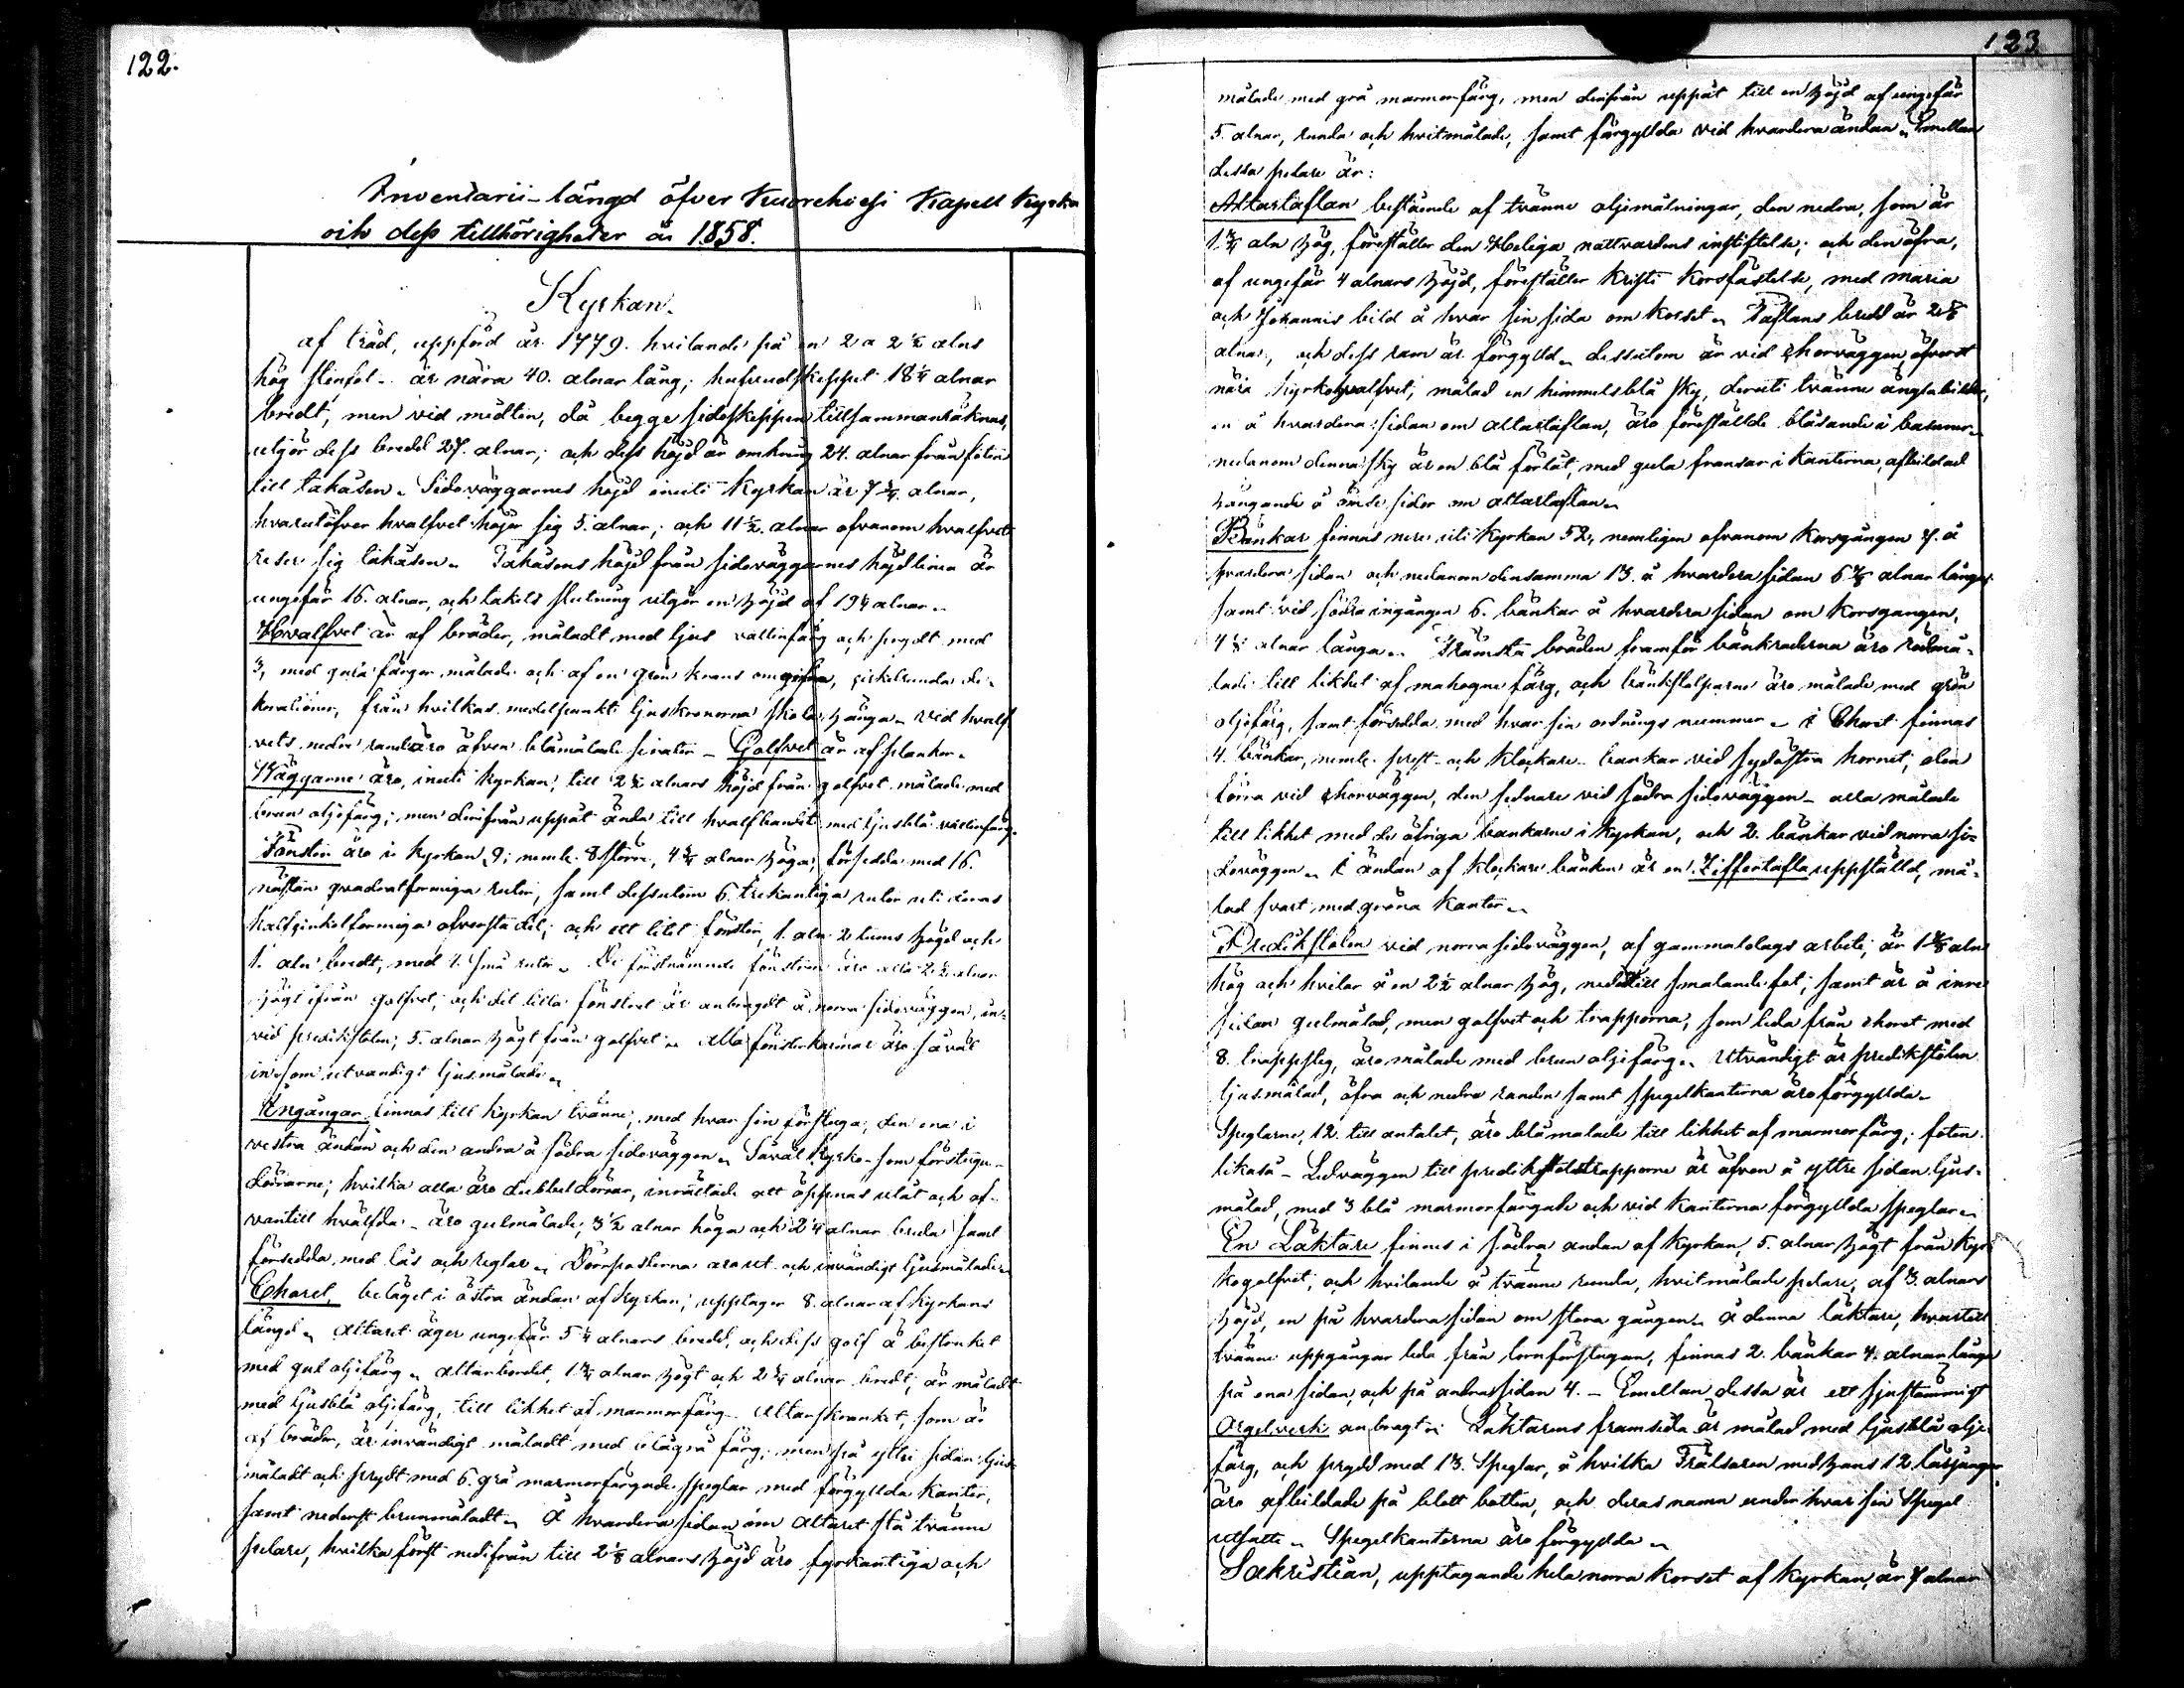 122.
Inventarii-längd öfver Kuorehvesi Kapell Kyrka
och dess tillhörigheter år 1858.
Kyrkan.
af träd, uppförd år 1779. hvilande på en 2 a 2 1/2 alns
hög stenfot. är nära 40. alnar lång; hufvudskeppet 18 1/4 alnar
bredt, men vid midten, då begge sidoskeppen tillsammanräknas,
utgör dess bredd 27. alnar; och dess höjd är omkring 24. alnar från foten
till takåsen. Sidoväggarnes höjd inuti Kyrkan är 7 3/4. alnar,
hvarutöfver hvalfvet höjer sig 5. alnar; och 11 1/2. alnar ofvanom hvalfvet
reser sig takåsen. Takåsens höjd från sidoväggarnes höjdlinea är
ungefär 16. alnar, och takets slutning utgör en höjd af 19 1/4 alnar.
Hvalfvet är af bräder, måladt med ljus vattenfärg och prydt med
3, med gula färger målade och af en grön krans omgifna, cirkelrunda de-
korationer, från hvilkas medelpunkt ljuskronorna skola hänga. Vid hvalf-
vets nedre rand äro äfven blåmålade sirater – Golfvet är af plankor.
Väggarne äro, inuti Kyrkan, till 2 1/2 alnars höjd från golfvet målade med
brun oljefärg; men derifrån uppåt ända till hvalfbandet med ljusblå vattenfärg.
Fönster äro i Kyrkan 9; neml. 8 större, 4 3/4 alnar höga, försedda med 16.
nästan qvadratformiga rutor, samt dessutom 6. trekantiga rutor uti deras
halfcirkelformiga ofversta del; och ett litet fönster, 1. aln 2 tums höjd och
1. aln bredt, med 4. små rutor. De förstnämnde fönstren äro alla 2 1/2 alnar
högt ifrån golfvet; och det lilla fönstret är anbragdt å norra sidoväggen, in-
vid predikstolen; 5. alnar högt från golfvet. Alla fönsterkarmar äro såväl
in- som utvändigt ljusmålade.
Ingångar finnas till Kyrkan tvänne, med hvar sin förstuga; den ena i
vestra ändan och den andra å södra sidoväggen. Såväl Kyrko- som förstugu-
dörrarne; hvilka alla äro dubbeldörrar, inrättade att öppnas utåt och of-
vantill hvälfda – äro gulmålade; 3 1/2 alnar höga och 2 1/4 alnar breda samt
försedda med lås och reglar. Dörrposterna äro ut- och invändigt ljusmålade.
Choret, beläget i östra ändan af Kyrkan; upptager 8. alnar af Kyrkans
längd. Altaret äger ungefär 5 1/4 alnars bredd, och dess golf är bestruket
med gul oljefärg. Altarbordet, 1 3/4 alnar högt och 2 3/4 alnar bredt, är måladt
med ljusblå oljefärg, till likhet af marmorfärg. Altarskranket, som är
af bräder, är invändigt måladt med blågrå färg; men på yttre sidan ljus-
måladt och prydt med 6. grå marmorfärgade speglar med förgyllda kanter,
samt nederst brunmåladt. Å hvardera sidan om Altaret stå tvänne
pelare, hvilka först nedifrån till 2 1/8 alnars höjd äro fyrkantiga och
123
målade med grå marmorfärg, men derifrån uppåt till en höjd af ungefär
5. alnar, runda och hvitmålade, samt förgyllda vid hvardera ändan. Emellan
dessa pelare är:
Altartaflan bestående af tvänne oljemålningar, den nedra, som är
aln hög, föreställer den Heliga nattvardens instiftelse; och den öfra,
af ungefär 4 alnars höjd, föreställer Kristi Korsfästelse, med Maria
och Johannis bild å hvar sin sida om Korset. Taflans bredd är
alnar, och dess ram är förgylld. dessutom är vid Chorväggen öfverst
nära Kyrkohvalfvet, målad en himmelsblå sky, deruti tvänne änglabilder,
en å hvardera sidan om altartaflan, äro föreställde blåsande i basuner.
nedanom denna sky är en blå förlåt, med gula fransar i kanterna, afbildad
hängande å ömse sidor om altartaflan.
Bänkar finnas nere uti Kyrkan 52, nemligen ofvanom Korsgången 7. å
hvardera sidan och nedanom densamma 13. å hvardera sidan alnar långa,
samt vid södra ingången 6. bänkar å hvardera sidan om Korsgången,
alnar långa. Främsta bräden framför bänkraderna äro rödmå-
lade till likhet af mahogne färg, och bänkstolparne äro målade med grön
oljefärg, samt försedda med hvar sin ordnings nummer. i Choret finnas
4. bänkar, neml. prest- och Klockare bänkar vid sydöstra hornet; den
förra vid Chorväggen, den sednare vid södra sidoväggen – alla målade
till likhet med de öfriga bänkarne i Kyrkan, och 2. bänkar vid norra si-
doväggen. I ändan af Klockare bänken är en Ziffertafla uppställd, må-
lad svart med gröna Kanter.
Predikstolen vid norra sidoväggen, af gammaldags arbete, är 1 5/8 aln
hög och hvilar å en 2 1/2 alnar hög, nedtill smalande fot; samt är å inre
sidan gulmålad, men golfvet och trapporna, som leda från choret med
8. trappsteg, äro målade med brun oljefärg. Utvändigt är predikstolen
ljusmålad, öfra och nedre randen samt spegelkanterna äro förgyllda.
Speglarne, 12. till antalet, äro blåmålade till likhet af marmorfärg; foten
likaså – Ledväggen till predikstolstrapporne är äfven å yttre sidan ljus-
målad, med 3 blå marmorfärgade och vid kanterna förgyllda speglar.
En Läktare finnes i södra ändan af Kyrkan, 5. alnar högt från Kyr-
kogolfvet, och hvilande å tvänne runda, hvitmålade pelare, af 3. alnars
höjd, en på hvardera sidan om stora gången. Å denna läktare, hvartill
tvänne uppgångar leda från tornförstugan, finnas 2. bänkar 4. alnar långa
på ena sidan, och på andra sidan 4. – Emellan dessa är ett sjustämmigt
Orgelverk anbragt. Läktarens framsida är målad med ljusblå olje-
färg, och prydd med 13. Speglar, å hvilka Frälsaren med hans 12 lärjungar
äro afbildade på blott botten, och deras namn under hvar sin Spegel
utsatte. Spegelkanterna äro förgyllda.
Sakristian, upptagande hela norra korset af Kyrkan, är 7 alnar